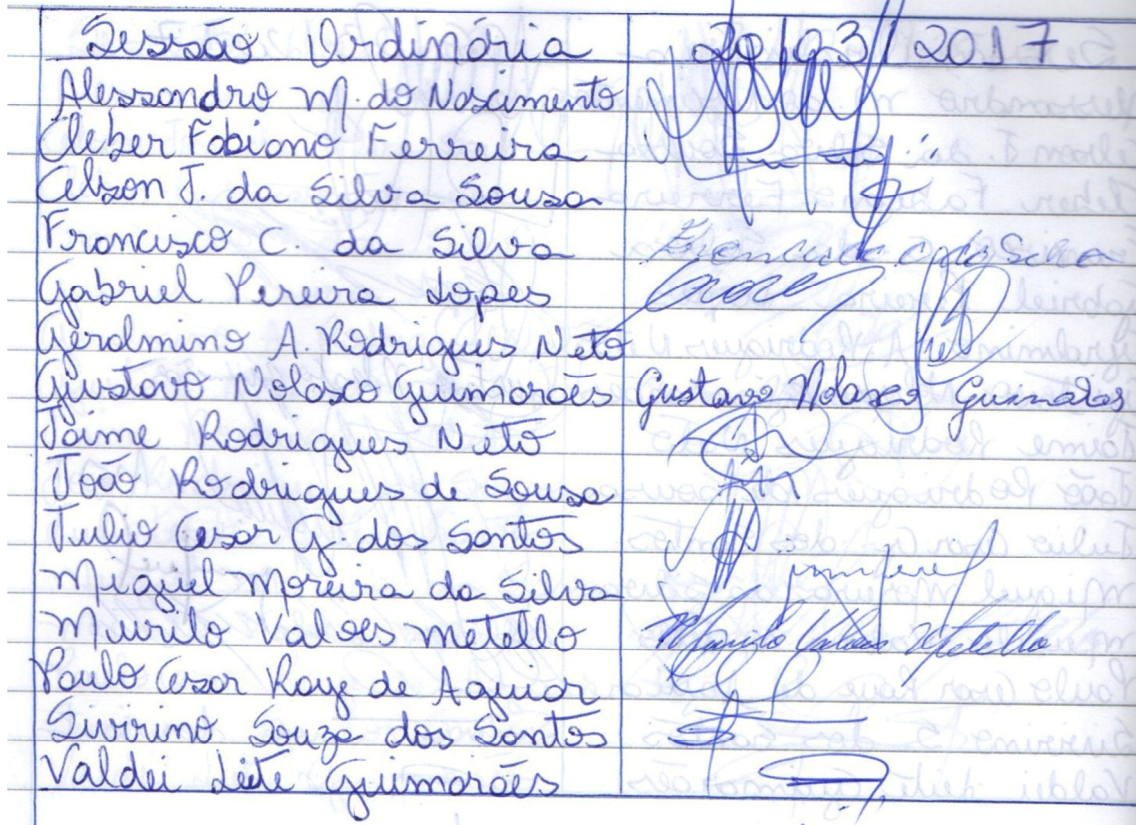 Sessão Ordinária 20/03/2017
Alessandro M. do Nascimento
Cleber Fabiano Ferreira
Celson J. da Silva Sousa
Francisco C. da Silva Francisco C. da Silva
Gabriel Pereira Lopes
Geralmino A. Rodrigues Neto
Gustavo Nolasco Guimarães Gustavo Nolasco Guimarães
Jaime Rodrigues Neto
João Rodrigues de Sousa
Julio Cesar G. dos Santos
Miguel Moreira da Silva
Murilo Valoes Metello Murilo Valoes Metello
Paulo Cesar Raye de Aguiar
Sivirino Souza dos Santos
Valdei Leite Guimarães